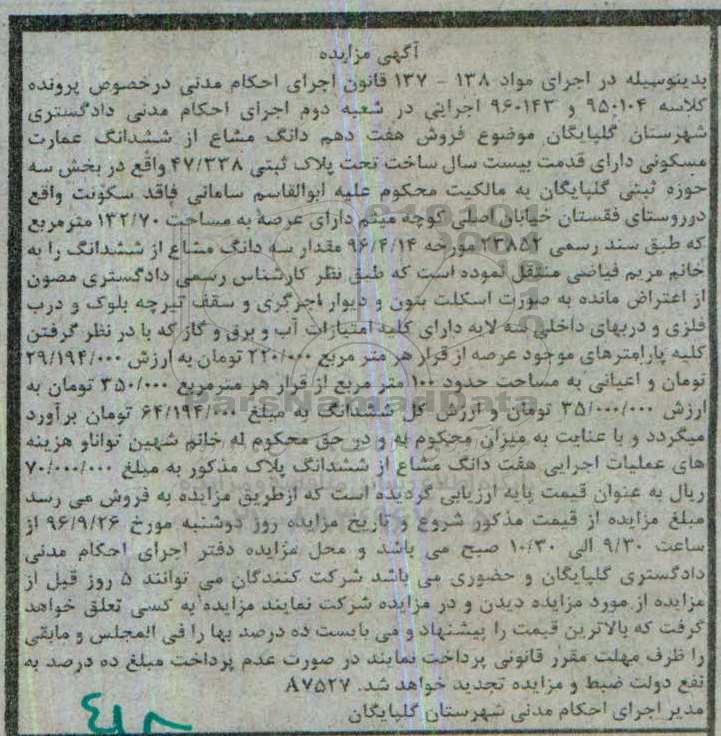 آگهی مزایده
بدینوسیله در اجرای مواد ۱۳۸ - ۱۳۷ قانون اجرای احکام مدنی درخصوص پرونده
کلاسه ۹۵۰۱۰۴ و ۹۶۰۱۴۳ اجرایی در شعبه دوم اجرای احکام مدنی دادگستری
شهرستان گلپایگان موضوع فروش هفت دهم دانگ مشاع از ششدانگ عمارت
مسکونی دارای قدمت بیست سال ساخت تحت پلاک ثبتی ۴۷/۳۳۸ واقع در بخش سه
حوزه ثبتی گلپایگان به مالکیت محکوم علیه ابوالقاسم سامانی فاقد سکونت واقع
درروستای فقستان خیابان اصلی کوچه میثم دارای عرصه به مساحت ۱۳۲/۷۰ مترمربع
که طبق سند رسمی ۲۳۸۵۲ مورخه ۹۶/۴/۱۴ مقدار سه دانگ مشاع از ششدانگ را به
خانم مریم فیاضی منتقل نموده است که طبق نظر کارشناس رسمی دادگستری مصون
از اعتراض مانده به صورت اسکلت بتون و دیوار آجرگری و سقف تیرچه بلوک و درب
فلزی و دربهای داخلی سه لایه دارای کلیه امتیازات آب و برق و گاز که با در نظر گرفتن
کلیه پارامترهای موجود عرصه از قرار هر متر مربع ۲۲۰/۰۰۰ تومان به ارزش ۲۹/۱۹۴/۰۰۰
تومان و اعیانی به مساحت حدود ۱۰۰ متر مربع از قرار هر مترمربع ۳۵۰/۰۰۰ تومان به
ارزش ۳۵/۰۰۰/۰۰۰ تومان و ارزش کل ششدانگ به مبلغ ۶۴/۱۹۴/۰۰۰ تومان برآورد
میگردد و با عنایت به میزان محکوم به و در حق محکوم له خانم شهین تواناو هزینه
های عملیات اجرایی هفت دانگ مشاع از ششدانگ پلاک مذکور به مبلغ ۷۰/۰۰۰/۰۰۰
ریال به عنوان قیمت پایه ارزیابی گردیده است که ازطریق مزایده به فروش می رسد
مبلغ مزایده از قیمت مذکور شروع و تاریخ مزایده روز دوشنبه مورخ ۹۶/۹/۲۶ از
ساعت ۹/۳۰ الی ۱۰/۳۰ صبح می باشد و محل مزایده دفتر اجرای احکام مدنی
دادگستری گلپایگان و حضوری می باشد شرکت کنندگان می توانند ۵ روز قبل از
مزایده از مورد مزایده دیدن و در مزایده شرکت نمایند مزایده به کسی تعلق خواهد
گرفت که بالاترین قیمت را پیشنهاد و می بایست ده درصد بها را فی المجلس و مابقی
را ظرف مهلت مقرر قانونی پرداخت نمایند در صورت عدم پرداخت مبلغ ده درصد به
نفع دولت ضبط و مزایده تجدید خواهد شد. A۷۵۲۷
مدیر اجرای احکام مدنی شهرستان گلپایگان
ParsNamadData